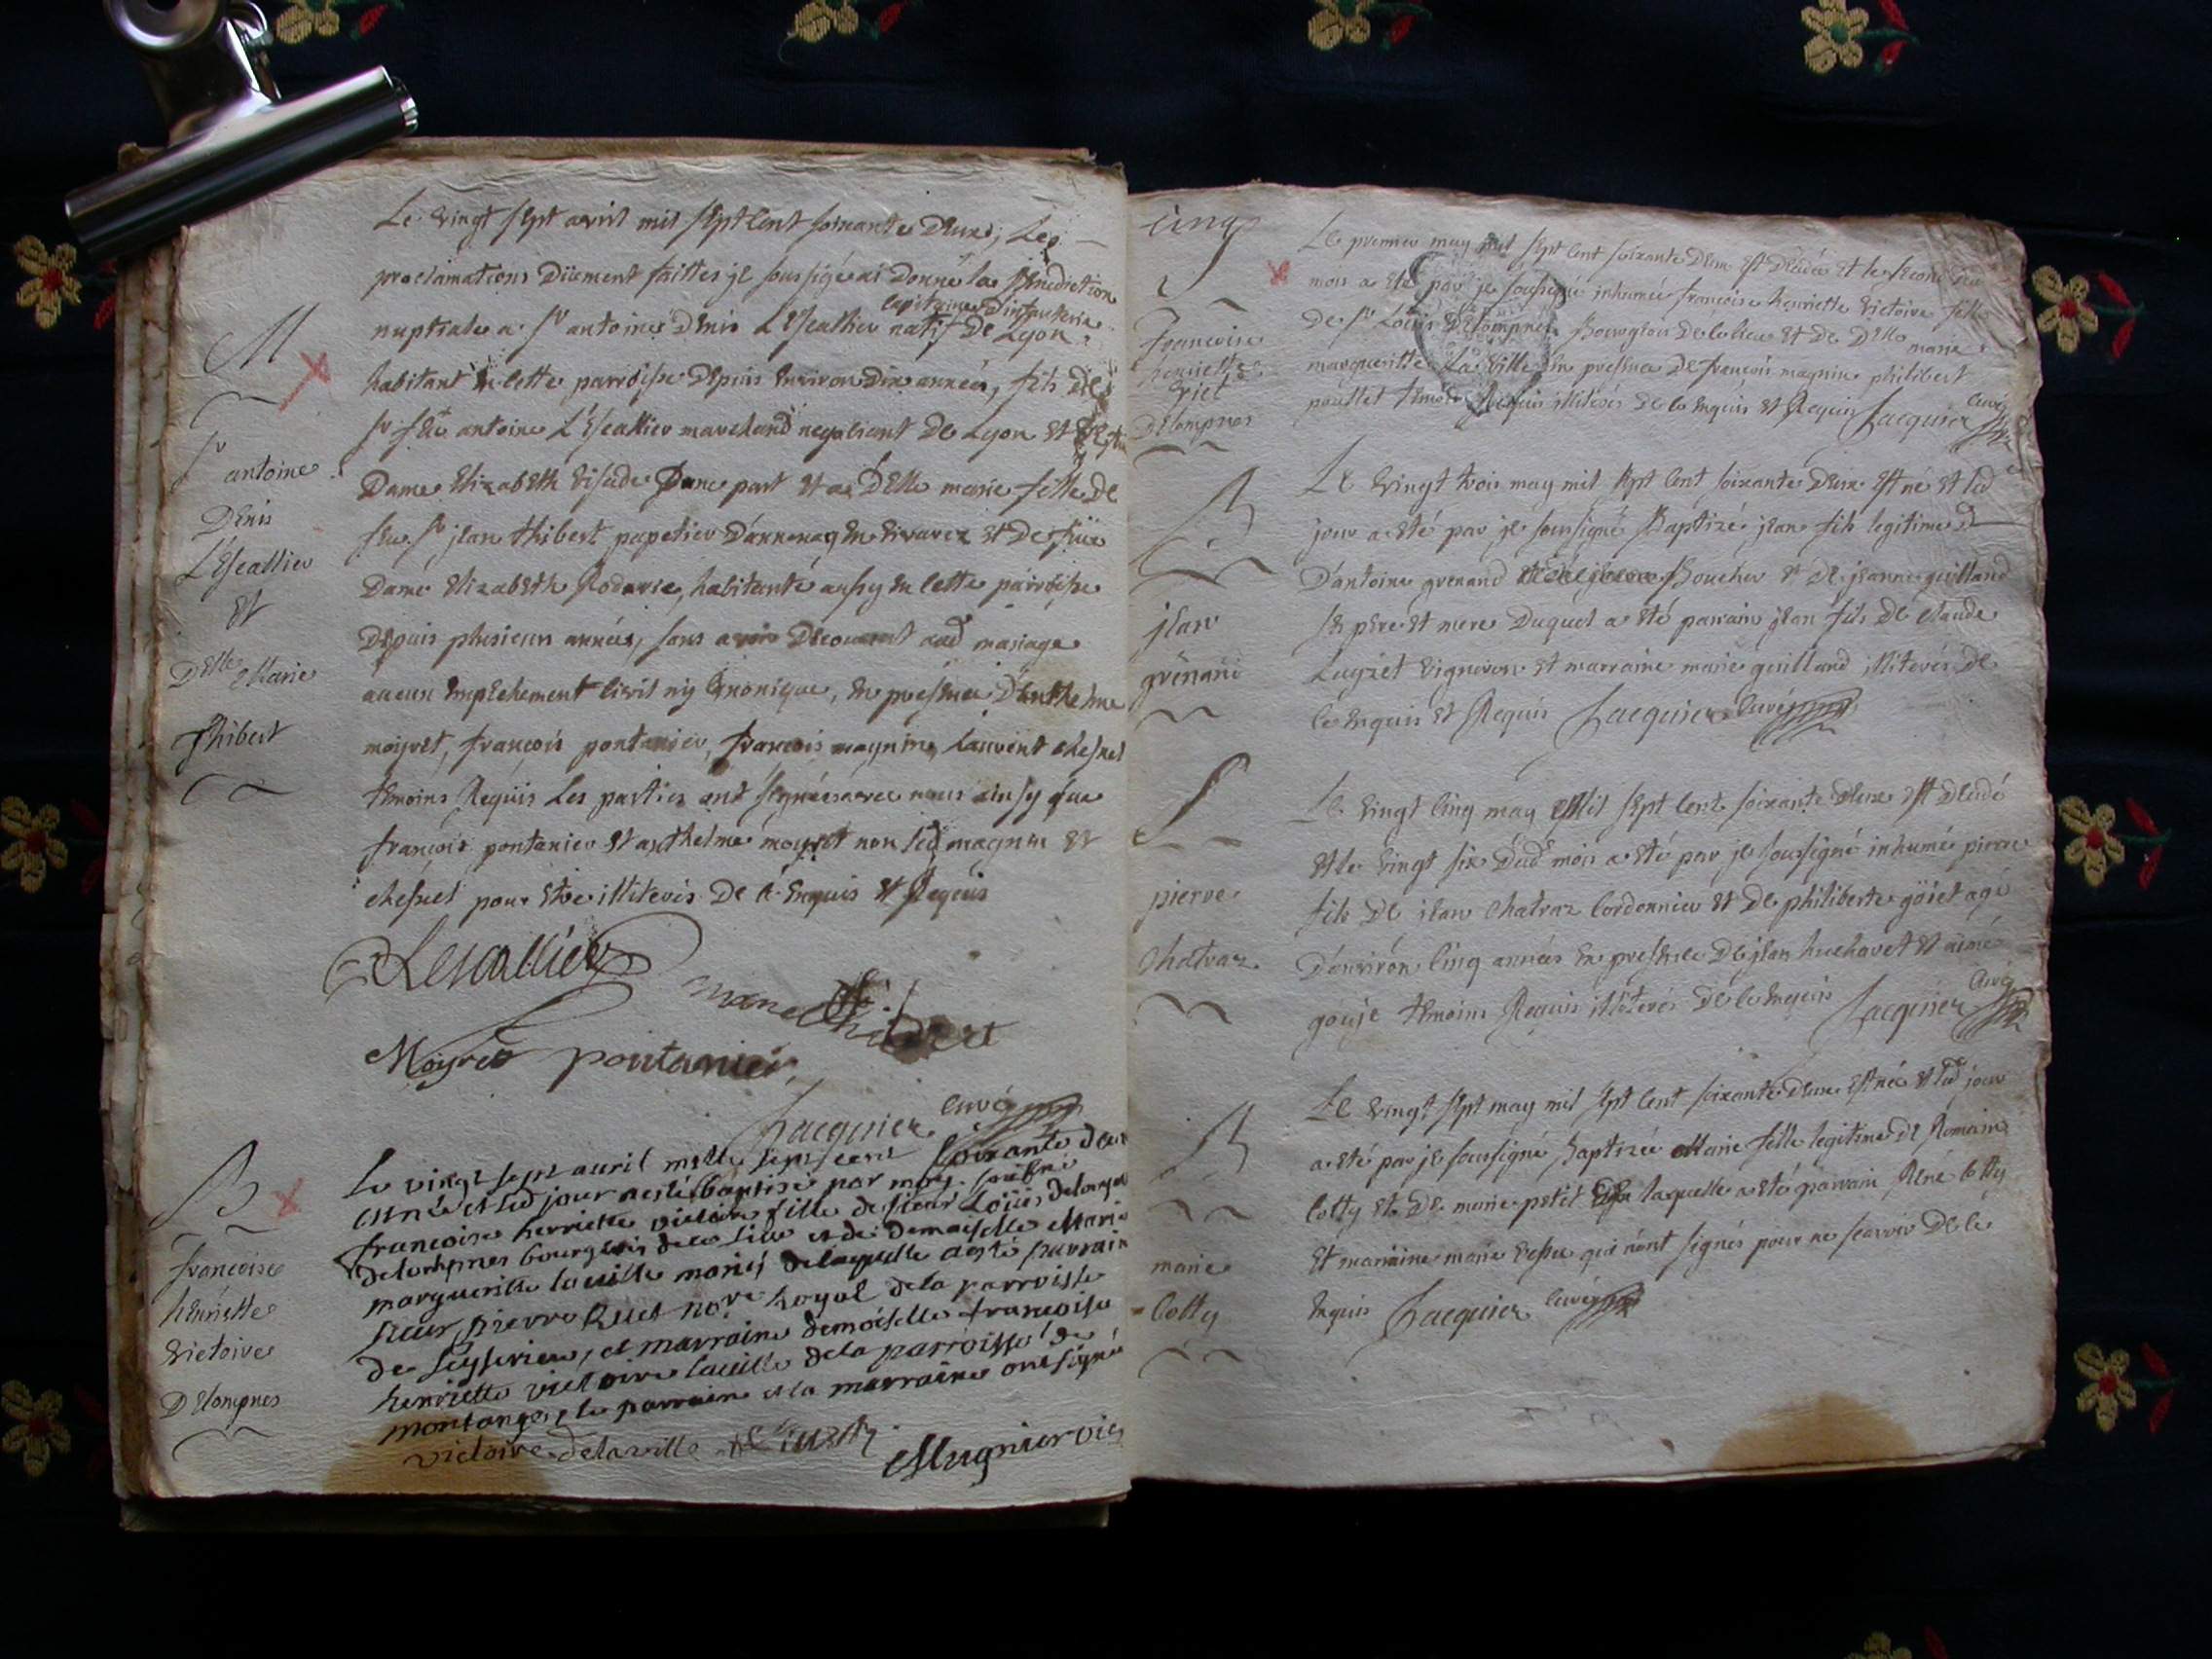 Le vingt sept avril mil sept cent soixante deux, Les
proclamations düement faittes je soussigé ai donné la benediction
capitaine d'infanterie
nuptiale a sr antoine denis L'Escallier natif de Lyon
habitant en cette parroisse depuis environ dix années, fils de
sr feu antoine L'Escallier marchand negotiant de Lyon et de
Dame Elizabeth d'une part et a Delle marie fille de
feu sr jean thibert papetier d'annonay en vivarez et de feüe
Dame Elizabeth habitante aussy en cette parroisse
depuis plusieurs années, sans avoir decouvert aud mariage
aucun empechement civil ny canonique, en presence d'anthelme
moyret, françois pontanier, françois magnin, laurent chesnel
temoins Requis Les parties ont signées avec nous ainsy que
françois pontanier et anthelme moyret non led magnin et
chesnel pour etre illiterés de ce Enquis et Requis
Lescallier
marie thibert
Moyret pontanier
Jacquier curé
M
sr antoine
Denis
L'Escallier
et
Delle Marie
thibert
Le vingt sept auril mille sept cent soixante deux
est née et led jour a esté baptisé par moy soubné
francoise henriette victoire fille de sieur Loüis
delompnes bourgeois de et de demoiselle Marie
margueritte laville mariés de laquelle a esté parrain
sieur pierre nore royal de la parroisse
de Seyserieu, et marraine demoiselle francoise
henriette victoire laville de la parroisse de
montange, le parrain et la marraine ont signé
victoire delaville
Mugnier vic
B
francoise
henriette
victoire
Delompnes
cinq
Le premier may mil sept cent soixante deux est decedée et le second du
mois a eté par je soussigné inhumée françoise henriette victoire fille
de sr Loüis Delompnes Bourgeois de ce lieu et de Delle marie
margueritte La ville en presence de françois magnin philibert
paullet temoins Requis illiterés de ce enquis et Requis Jacquier curé
S
francoise
henriette
vict
Delompnes
Le vingt trois may mil sept cent soixante deux est né et led
jour a eté par je soussigné Baptizé jean fils legitime d
D'antoine grenand Boucher et de jeanne guilland
ses pere et mere duquel a eté parrain jean fils de claude
Luyzet vigneron et marraine marie guilland illiterés de
ce enquis et Requis Jacquier curé
B
jean
grenand
Le vingt cinq may mil sept cent soixante deux est decedé
et le vingt six dud mois a eté par je soussigné inhumé pierre
fils de jean chatraz cordonnier et de philiberte goiet agé
d'environ cinq années en presence de jean huchavet et aimé
gouje temoins Requis illiterés de ce enquis Jacquier curé
S
pierre
chatraz
Le vingt sept may mil sept cent soixante deux est née et led jour
a eté par je soussigné Baptizée Marie fille legitime de Romain
cotty et de marie petit de laquelle a eté parrain René cotty
et marraine marie qui n'ont signés pour ne scavoir de ce
enquis Jacquier curé
B
marie
cotty